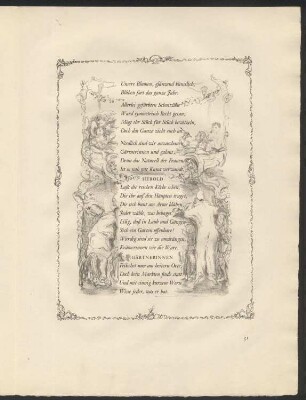 Unsere Blumen, glänzend künstlich,
Blühen fort das ganze Jahr.
Allerlei gefärbten Schnitzeln
Ward symmetrisch Recht getan;
Mögt ihr Stück für Stück bewitzeln,
Doch das Ganze zieht euch an.
Niedlich sind wir anzuschauen,
Gärtnerinnen und galant;
Denn das Naturell der Frauen
Ist so nah mit Kunst verwandt.
HEROLD
Laßt die reichen Körbe sehen,
Die ihr auf den Häupten traget,
Die sich bunt am Arme blähen,
Jeder wähle, was behaget.
Eilig, daß in Laub und Gängen
Sich ein Garten offenbare!
Würdig sind sie zu umdrängen,
Krämerinnen wie die Ware.
GÄRTNERINNEN
Feilschet nun am heitern Orte,
Doch kein Markten finde statt!
Und mit sinnig kurzem Worte
Wisse jeder, was er hat.